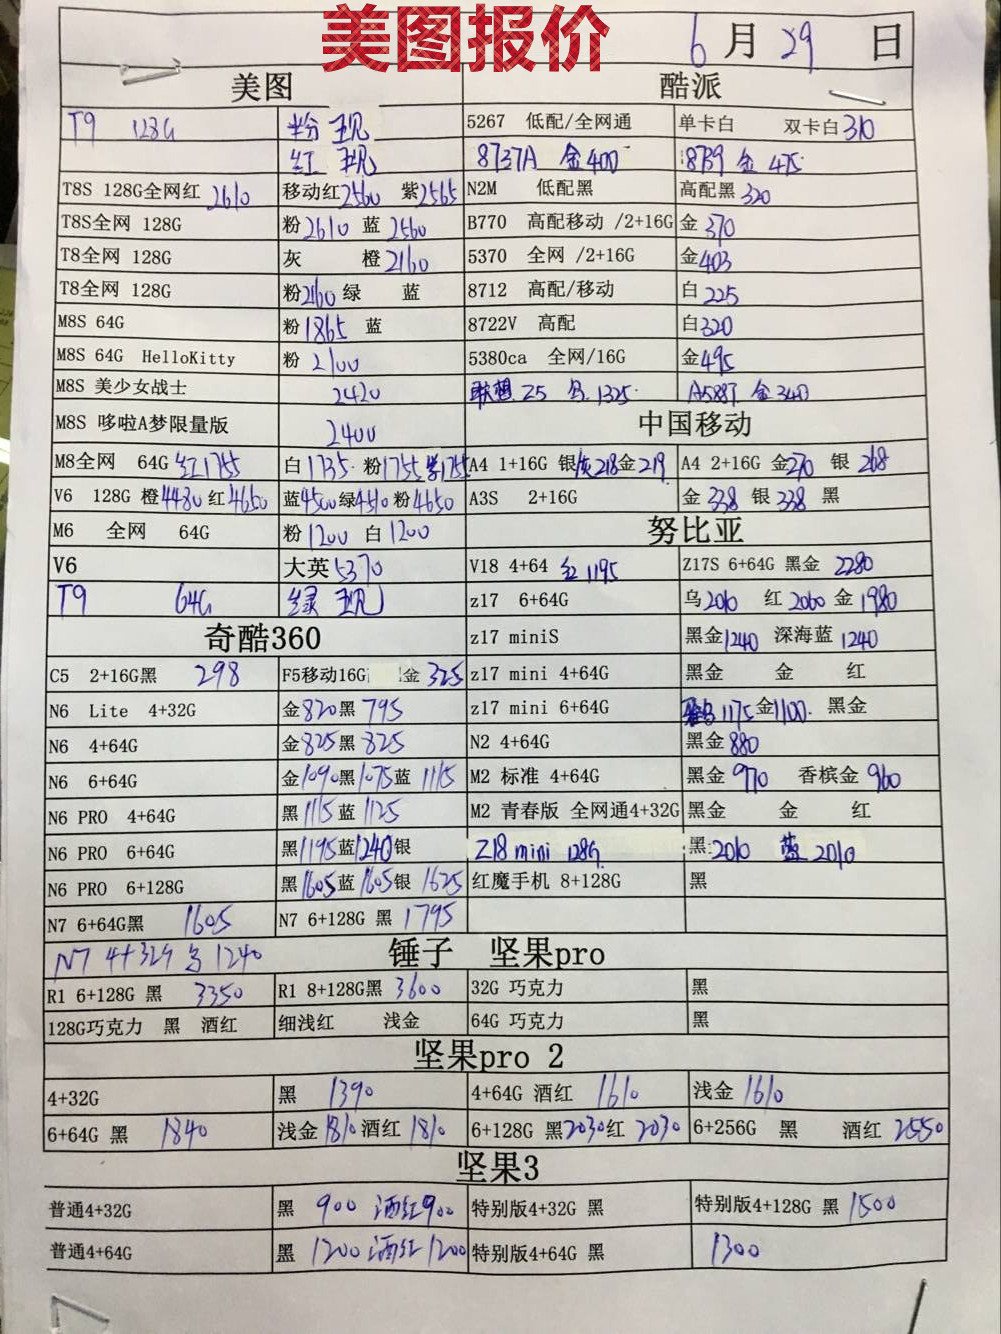 美图报价
6 月 29 日
美图 酷派
T9 128G 粉 现 5267 低配/全网通 单卡白 双卡白310
红 现 8737A 金400 8739 金 475
T8S 128G全网红 2610 移动红2560 紫2565 N2M 低配黑 高配黑 320
T8S全网 128G 粉2610 蓝 2560 B770 高配移动 /2+16G 金 370
T8全网 128G 灰 橙2160 5370 全网 /2+16G 金403
T8全网 128G 粉2160 绿 蓝 8712 高配/移动 白 225
M8S 64G 粉1865 蓝 8722V 高配 白320
M8S 64G HelloKitty 粉 2100 5380ca 全网/16G 金495
M8S 美少女战士 2420 联想 Z5 乌 1325 A588T 金 340
M8S 哆啦A梦限量版 2400 中国移动
M8全网 64G 红1755 白1735 粉1755 紫1755 A4 1+16G 银灰218金219 A4 2+16G 金270 银 268
V6 128G 橙4480 红4650 蓝4500绿4510 粉4650 A3S 2+16G 金 338 银 338 黑
M6 全网 64G 粉1200 白1200 努比亚
V6 大英5370 V18 4+64 红 1195 Z17S 6+64G 黑金 2280
T9 64G 绿 现 z17 6+64G 乌2010 红 2060 金 1980
奇酷360 z17 miniS 黑金1240 深海蓝 1240
C5 2+16G黑 298 F5移动16G 金 325 z17 mini 4+64G 黑金 金 红
N6 Lite 4+32G 金820黑 795 z17 mini 6+64G 1175金1100 黑金
N6 4+64G 金825黑 825 N2 4+64G 黑金 880
N6 6+64G 金1090黑1075蓝 1115 M2 标准 4+64G 黑金 970 香槟金 960
N6 PRO 4+64G 黑1115蓝 1125 M2 青春版 全网通4+32G 黑金 金 红
N6 PRO 6+64G 黑1195蓝1240银 Z18 mini 128G 黑 2010 蓝 2010
N6 PRO 6+128G 黑1605蓝 1605银 1625 红魔手机 8+128G 黑
N7 6+64G黑 1605 N7 6+128G 黑 1795
N7 4+32G 乌 1240 锤子 坚果pro
R1 6+128G 黑 3350 R1 8+128G黑 3600 32G 巧克力 黑
128G巧克力 黑 酒红 细浅红 浅金 64G 巧克力 黑
坚果pro 2
4+32G 黑 1390 4+64G 酒红 1610 浅金 1610
6+64G 黑 1840 浅金 1810 酒红 1810 6+128G 黑2030红 2030 6+256G 黑 酒红 2550
坚果3
普通4+32G 黑 900 酒红900 特别版4+32G 黑 特别版4+128G 黑 1500
普通4+64G 黑 1200 酒红 1200 特别版4+64G 黑 1300